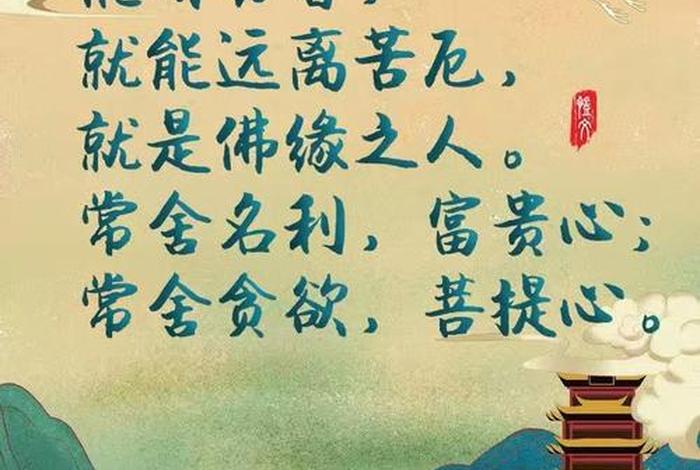 就能远离苦厄，
就是佛缘之人。
常舍名利，富贵心；
常舍贪欲，菩提心。